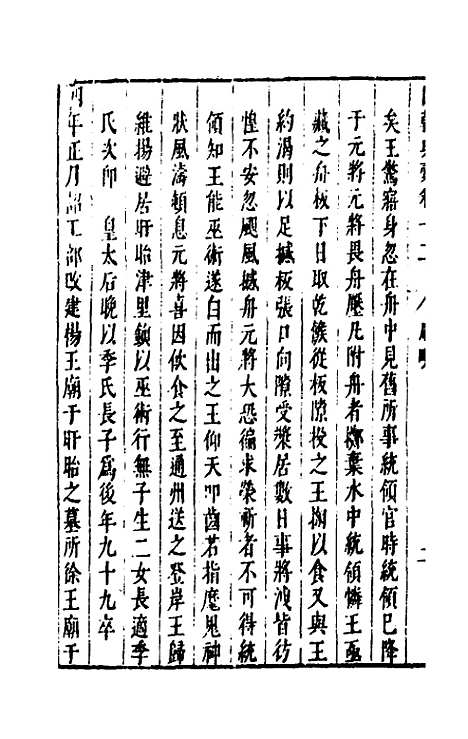 矣王驚寤身忽在舟中見舊所事統領官時統領已降
于元將元將畏舟壓凡附舟者擲棄水中統領憐王亟
藏之舟板下日取乾餱從板隙投之王掬以食又與王
約渴則以足撼板張口向隙受漿居數日事將洩皆彷
徨不安忽颶風撼舟元將大恐徧求禜祈者不可得統
領知王能巫術遂白而出之王仰天叩齒若指麾鬼神
狀風濤頓息元將喜因飲食之至通州送之登岸王歸
維揚避居盱眙津里鎮以巫術行無子生二女長適季
氏次即 皇太后晚以季氏長子爲後年九十九卒
年正月詔工部改建楊王廟于盱眙之墓所徐王廟于